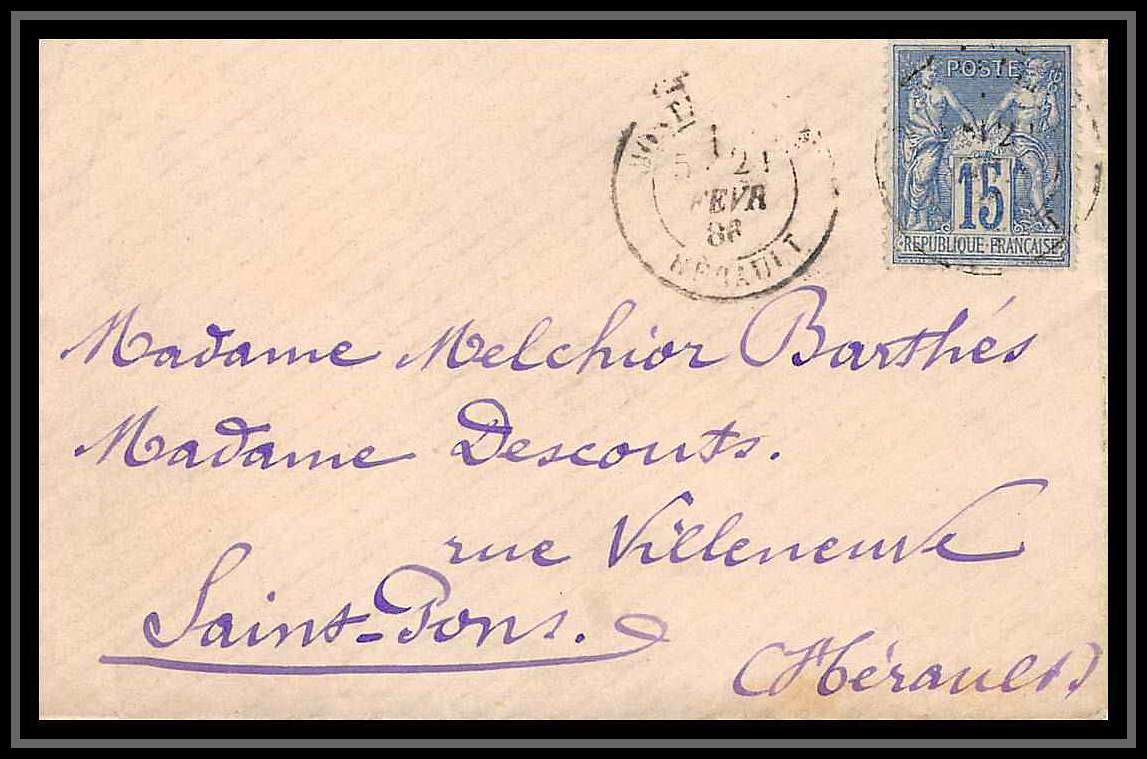 POSTE
15
REPUBLIQUE FRANÇAISE
21
FEVR
HÉRAULT
Madame Melchior Barthés
Madame Descouts.
rue Villeneuve
Saint-Pons.
(Hérault)